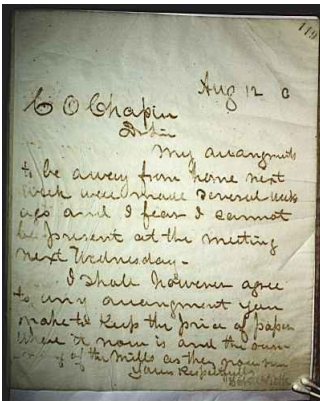 119
Aug 12 0
C O Chapin
Dr Sir
My arrangments
to be away from home next
week were made several weeks
ago and I fear I cannot
be present at the meeting
next Wednesday -
I shall however agree
to any arrangment you
make to keep the price of paper
where it now is and the
of the mills as they now run
Yours Respectfully